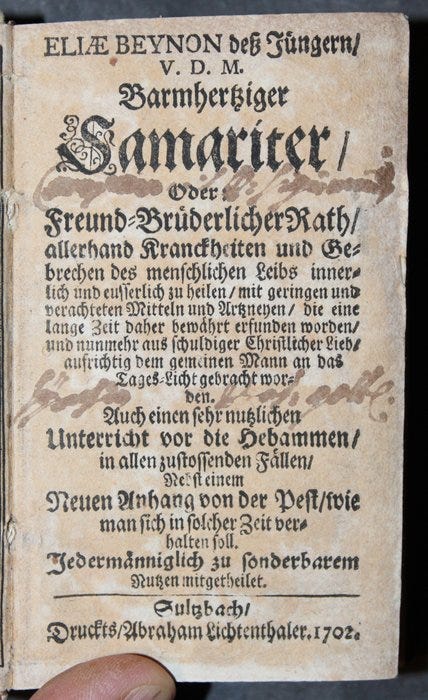 ELIÆ BEYNON deß Jüngern/
V. D. M.
Barmhertziger
Samariter/
Oder:
Freund-Brüderlicher Rath/
allerhand Kranckheiten und Ge-
brechen des menschlichen Leibs inner-
lich und eusserlich zu heilen/ mit geringen und
verachteten Mitteln und Artzneyen/ die eine
lange Zeit daher bewährt erfunden worden/
und nunmehr aus schuldiger Christlicher Lieb/
aufrichtig dem gemeinen Mann an das
Tages-Licht gebracht wor-
den.
Auch einen sehr nutzlichen
Unterricht vor die Hebammen/
in allen zustossenden Fällen/
Nebst einem
Neuen Anhang von der Pest/ wie
man sich in solcher Zeit ver-
halten soll.
Jedermänniglich zu sonderbarem
Nutzen mitgetheilet.
Sultzbach/
Druckts/ Abraham Lichtenthaler. 1702.